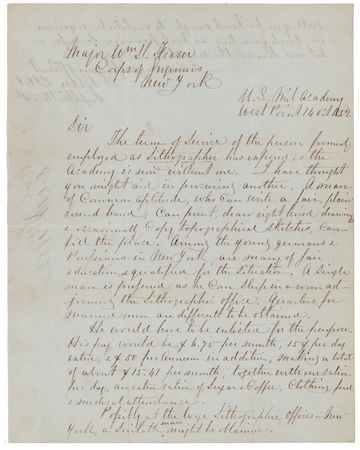 Major Wm D. Fraser
Corps of Engineers
New York
U. S. Mil Academy
West Point 14 Oct 1852
Sir
The term of service of the person formerly
employed as Lithographer has expired, & the
Academy is now without one. I have thought
you might aid in procuring another. A man
of common aptitude, who can write a fair, plain
round hand, can print, draw right lined drawings
& occasionally copy topographical sketches, can
fill the place. Among the young Germans &
Prussians in New York are many of fair
education, & qualified for the situation. A single
man is preferred, as he can sleep in a room ad-
joining the Lithographic office. Quarters for
married men are difficult to be obtained.
He would have to be enlisted for the purpose.
His pay would be $6.75 per month, 15¢ per day
extra, & $50 per annum in addition, making a total
of about $15.41 per month, together with one ration
per day, an extra ration of Sugar & Coffee, Clothing, fuel
& medical attendance.
Possibly at the large Lithographic offices in New-
York, a suitable man might be obtained.